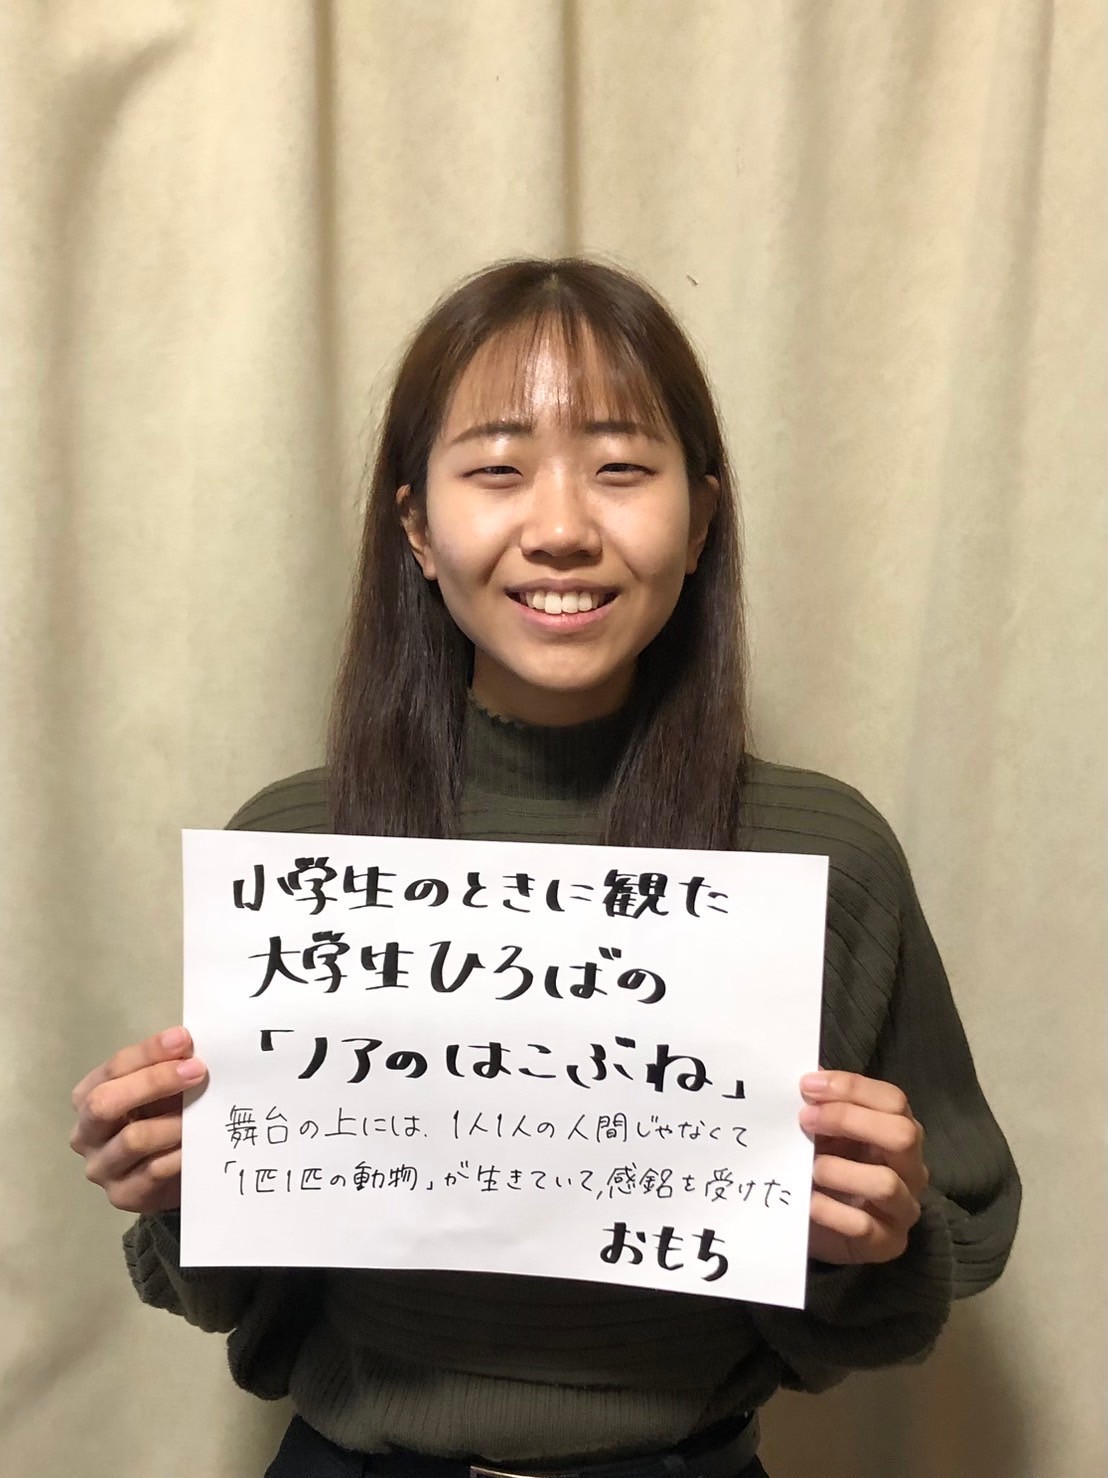 小学生のときに観た
大学生ひろばの
「ノアのはこぶね」
舞台の上には、1人1人の人間じゃなくて
「1匹1匹の動物」が生きていて、感銘を受けた
おもち